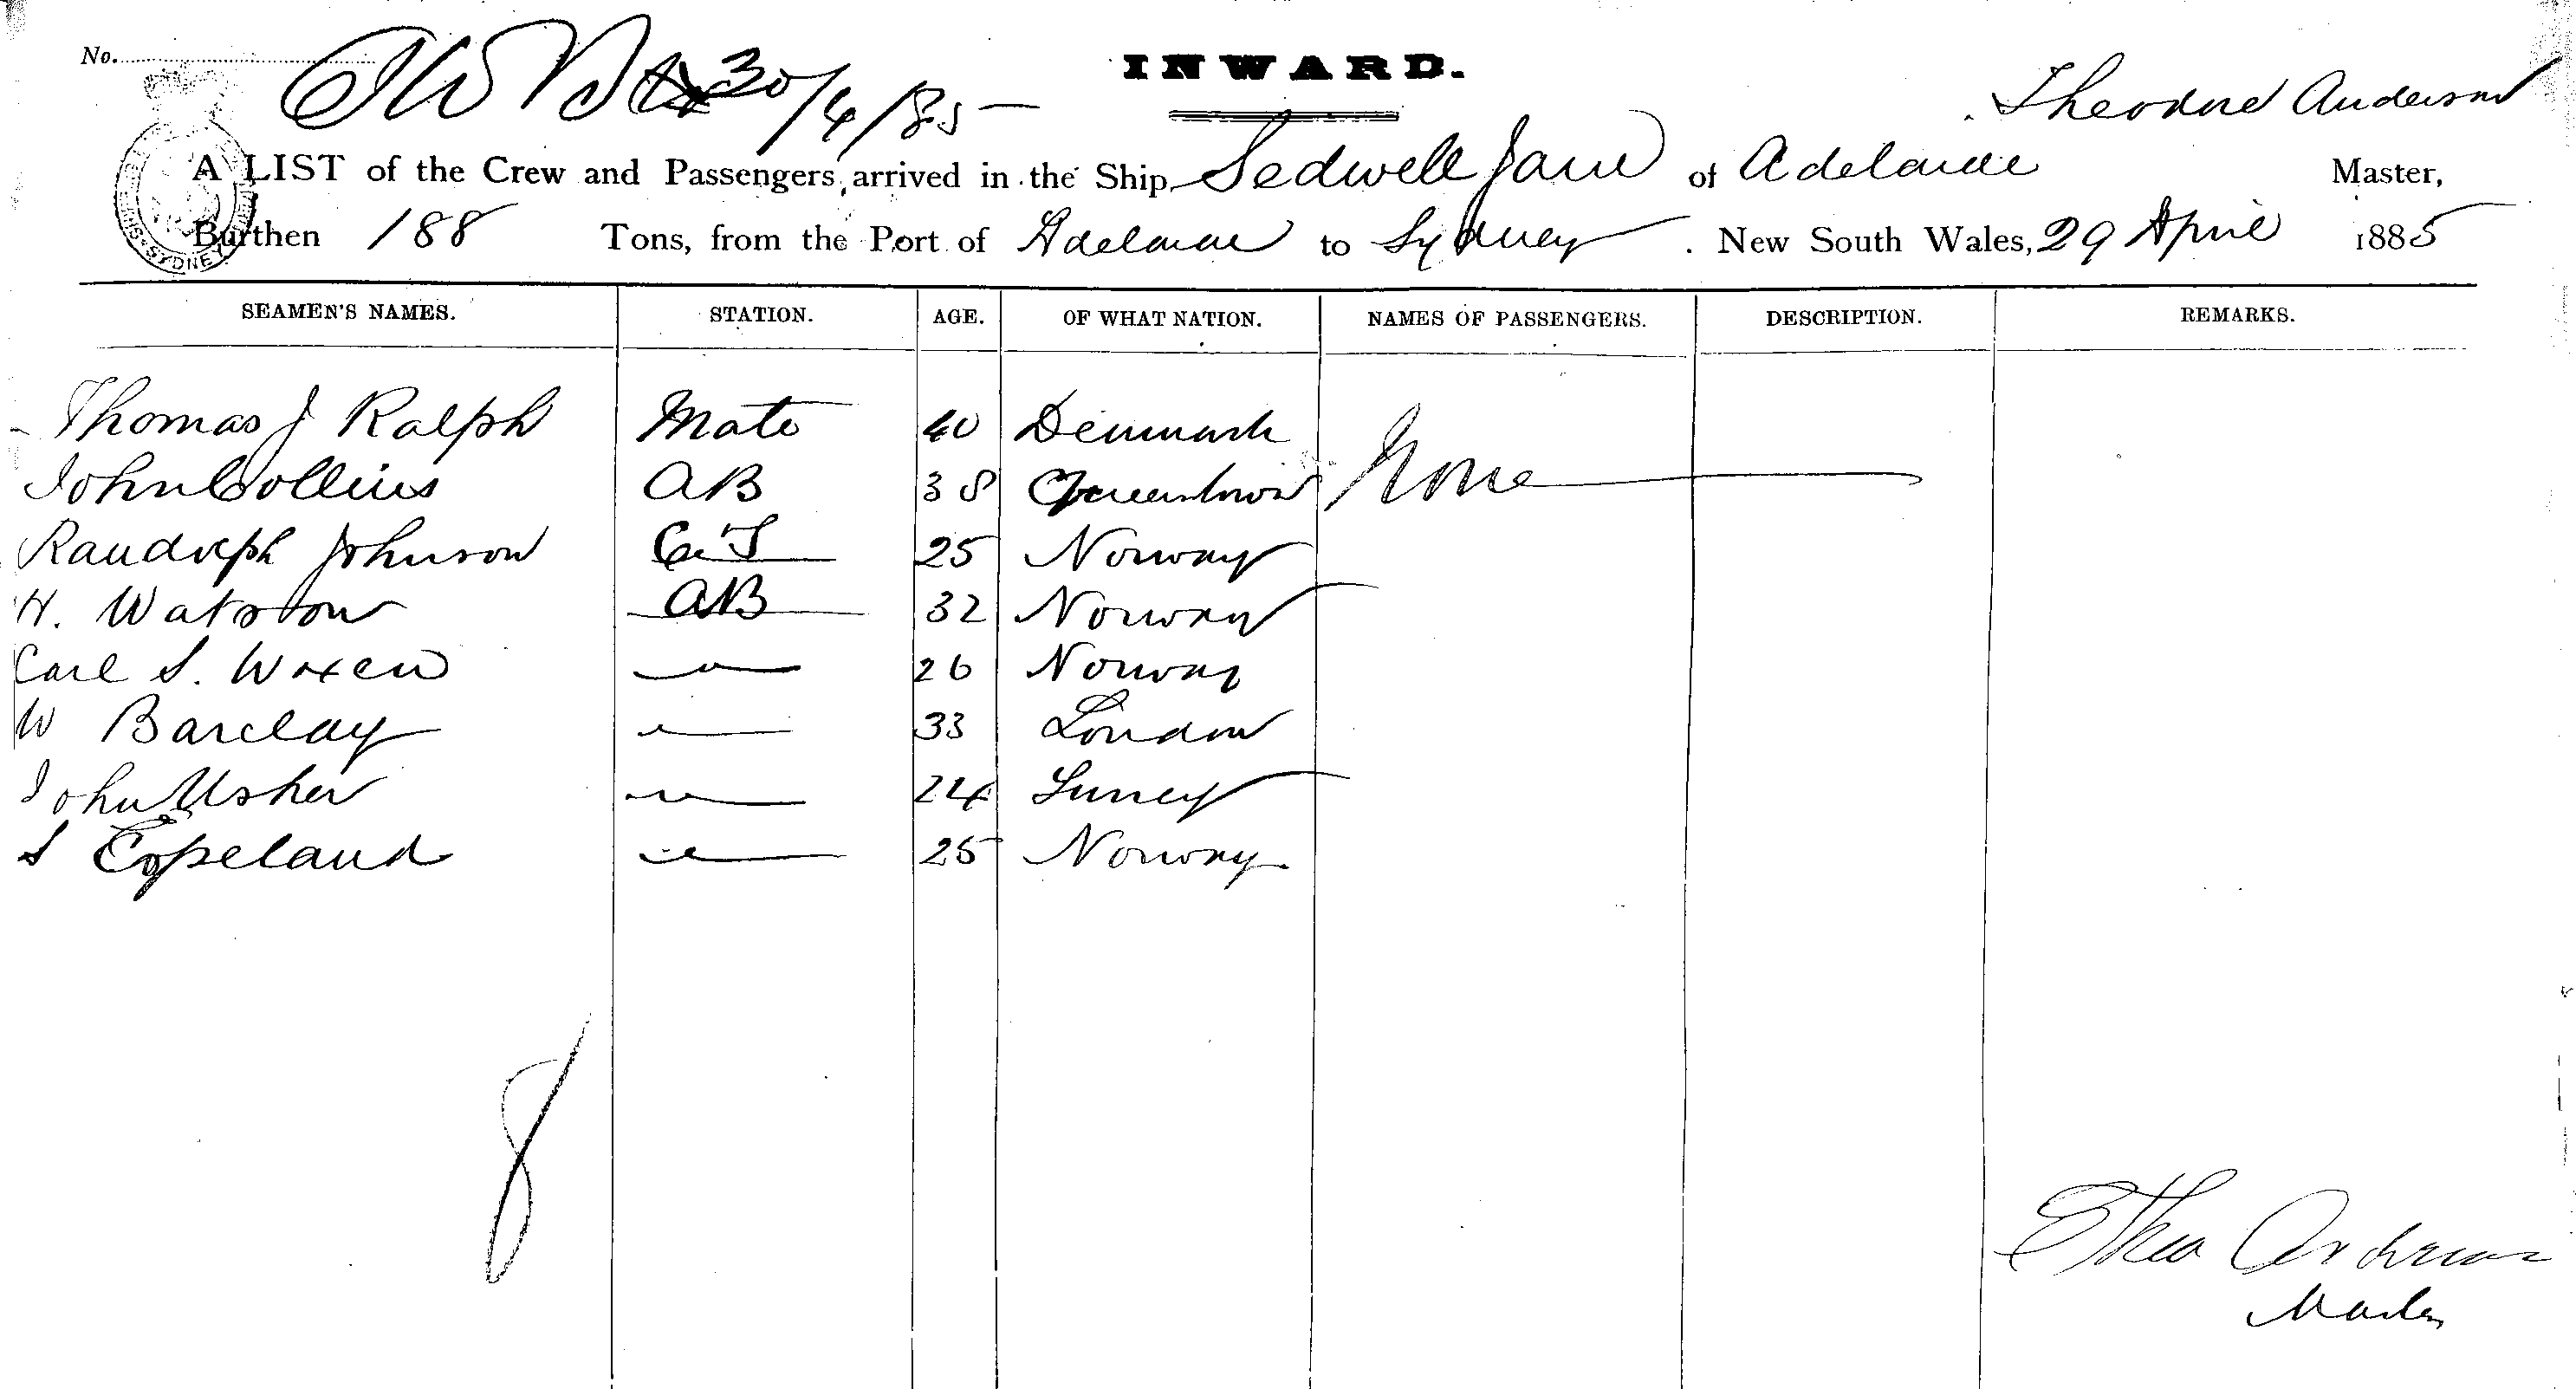 No.
30/4/85
INWARD.
Theodore Anderson
A LIST of the Crew and Passengers, arrived in the Ship Sedwell Jane of Adelaide Master,
Burthen 188 Tons, from the Port of Adelaide to Sydney. New South Wales, 29 April 1885
SEAMEN'S NAMES. STATION. AGE. OF WHAT NATION. NAMES OF PASSENGERS. DESCRIPTION. REMARKS.
Thomas J Ralph Mate 40 Denmark None
John Collins AB 38 Queenstown
Randolph Johnson 25 Norway
H. Watson AB 32 Norway
Carl S. Woxen 26 Norway
W Barclay 33 London
John Usher 24 Surrey
S Copeland 25 Norway
8
Theo
Master